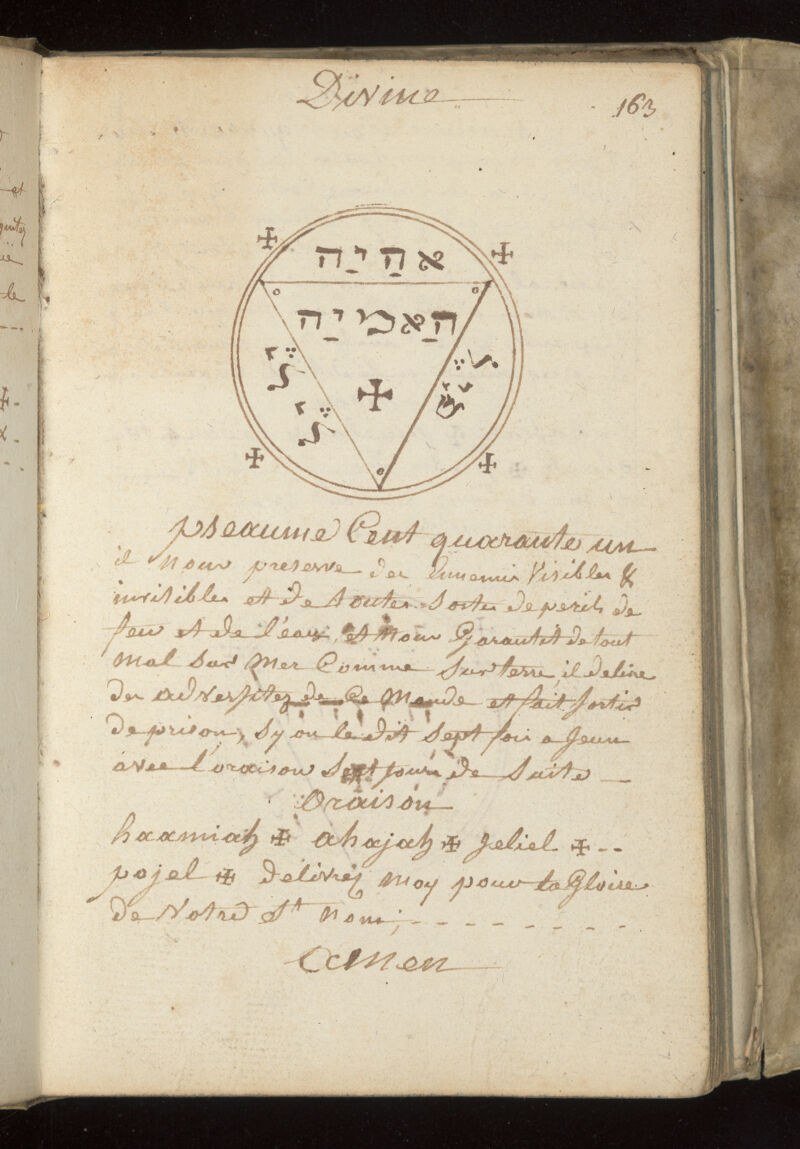 Divine
163
אהַיַה
הַאמיַה
pseaume Cent quarante un
il nous preserve des Ennemis Visibles &
invisibles et de toutes sortes de perils de
feu et de l'eau, et nous Garantit de tout
mal sur Mer Comme sur terre, il delivre
des adversitez de Ce Monde et fait sortir
de prison, sy on le dit sept fois a Jeun
avec l'oraison sept jours de suite
Oraison
haamiah ✠ ahajah ✠ Jeliel ✠ --
pojel ✠ délivrez moy pour la Gloire
de Votre St nom; - - - - - - - -
Amen
et
le